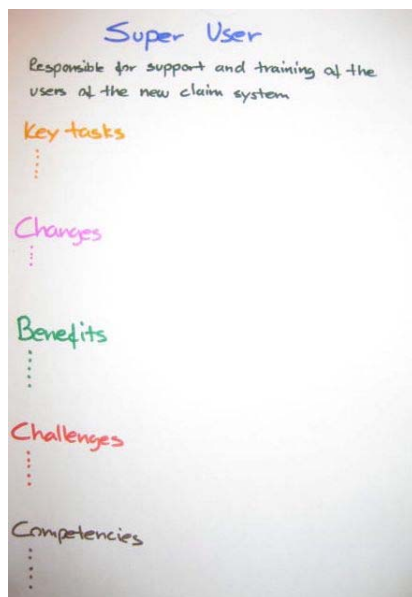 Super User
Responsible for support and training of the
users of the new claim system
Key tasks
Changes
Benefits
Challenges
Competencies